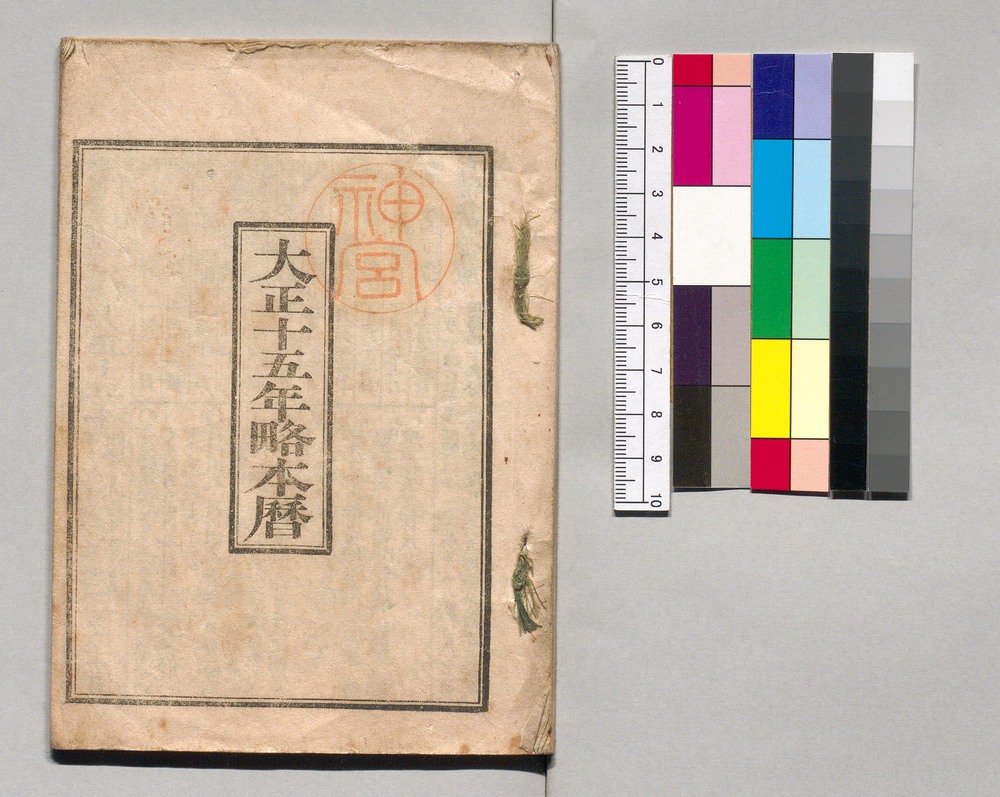 大正十五年略本暦
神宮
0
1
2
3
4
5
6
7
8
9
10